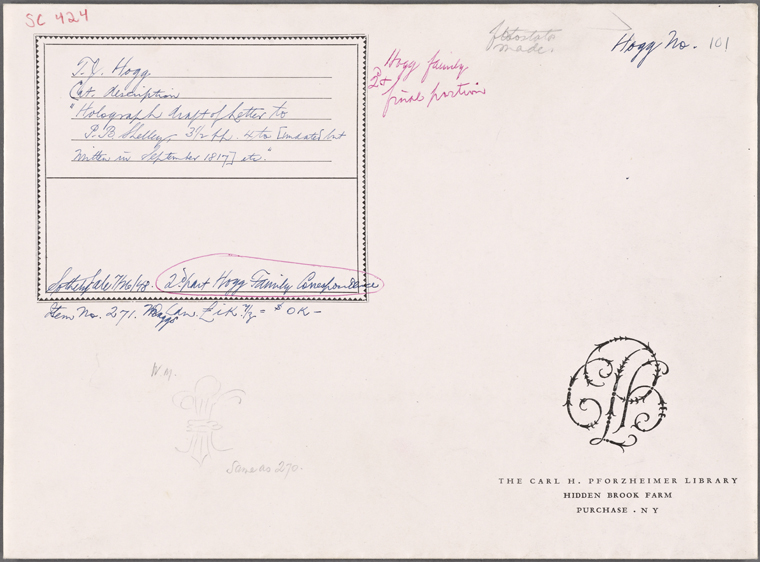 SC 424
fotostats
made.
Hogg No. 101
Hogg family
2d
final portion
T.J. Hogg.
Cat. description
"Holograph draft of Letter to
P.B. Shelley, 3½ pp. 4to [undated but
written in September 1817] etc."
Sotheby Sale 7/26/48. 2d part Hogg Family Correspondence
Item No. 271. Maggs
W.M.
Same as 270.
THE CARL H. PFORZHEIMER LIBRARY
HIDDEN BROOK FARM
PURCHASE . NY